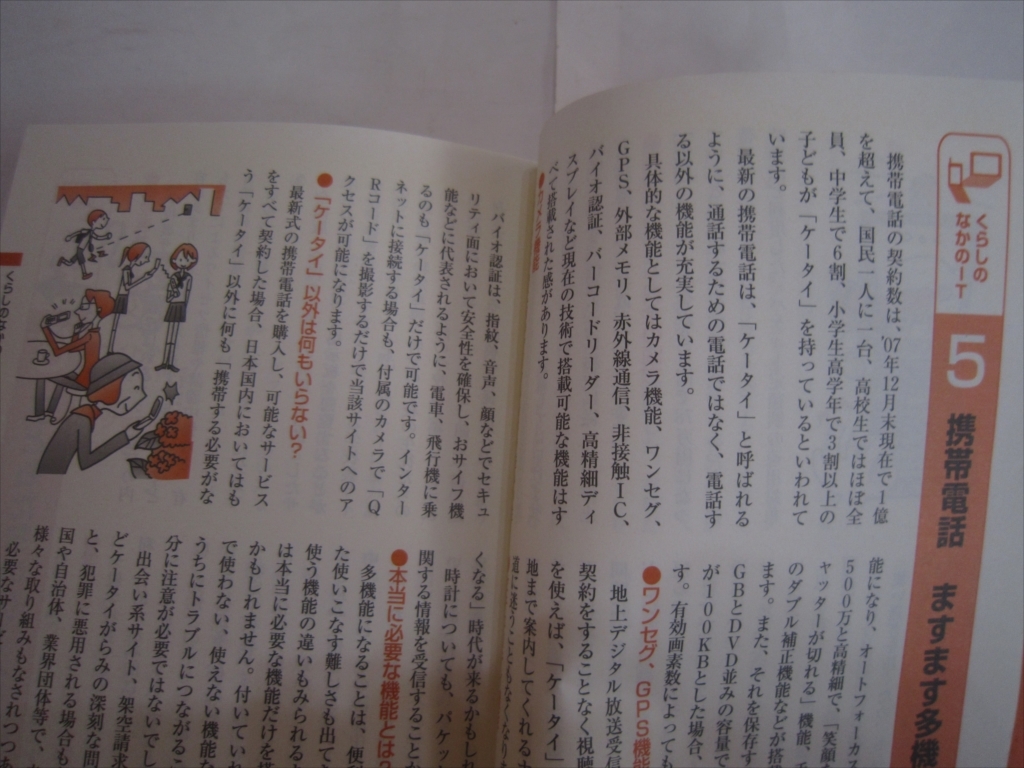 くらしの
なかのIT
5 携帯電話 ますます多機
携帯電話の契約数は、'07年12月末現在で1億
を超えて、国民一人に一台、高校生ではほぼ全
員、中学生で6割、小学生高学年で3割以上の
子どもが「ケータイ」を持っているといわれて
います。
最新の携帯電話は、「ケータイ」と呼ばれる
ように、通話するための電話ではなく、電話す
る以外の機能が充実しています。
具体的な機能としてはカメラ機能、ワンセグ、
GPS、外部メモリ、赤外線通信、非接触IC、
バイオ認証、バーコードリーダー、高精細ディ
スプレイなど現在の技術で搭載可能な機能はす
べて搭載された感があります。
能になり、オートフォーカス
500万と高精細で、「笑顔
ャッターが切れる」機能、手
のダブル補正機能などが搭
ます。また、それを保存す
GBとDVD並みの容量で
が100KBとした場合、
す。有効画素数によっても
●ワンセグ、GPS機能
地上デジタル放送受信
契約をすることなく視聴
を使えば、「ケータイ」
地まで案内してくれるナ
バイオ認証は、指紋、音声、顔などでセキュ
リティ面において安全性を確保し、おサイフ機
能などに代表されるように、電車、飛行機に乗
るのも「ケータイ」だけで可能です。インター
ネットに接続する場合も、付属のカメラで「Q
Rコード」を撮影するだけで当該サイトへのア
クセスが可能になります。
●「ケータイ」以外は何もいらない?
最新式の携帯電話を購入し、可能なサービス
をすべて契約した場合、日本国内においてはも
う「ケータイ」以外に何も「携帯する必要がな
くなる」時代が来るかもしれ
時計についても、パケッ
関する情報を受信することが
●本当に必要な機能とは?
多機能になることは、便利
た使いこなす難しさも出て
使う機能の違いもみられると
は本当に必要な機能だけを搭
かもしれません。付いていれ
で使わない、使えない機能な
うちにトラブルにつながるこ
分に注意が必要ではないでし
出会い系サイト、架空請求
どケータイがらみの深刻な問
と、犯罪に悪用される場合も
国や自治体、業界団体等で、
様々な取り組みもなされつつあ
必要なサービ
くらしのなか